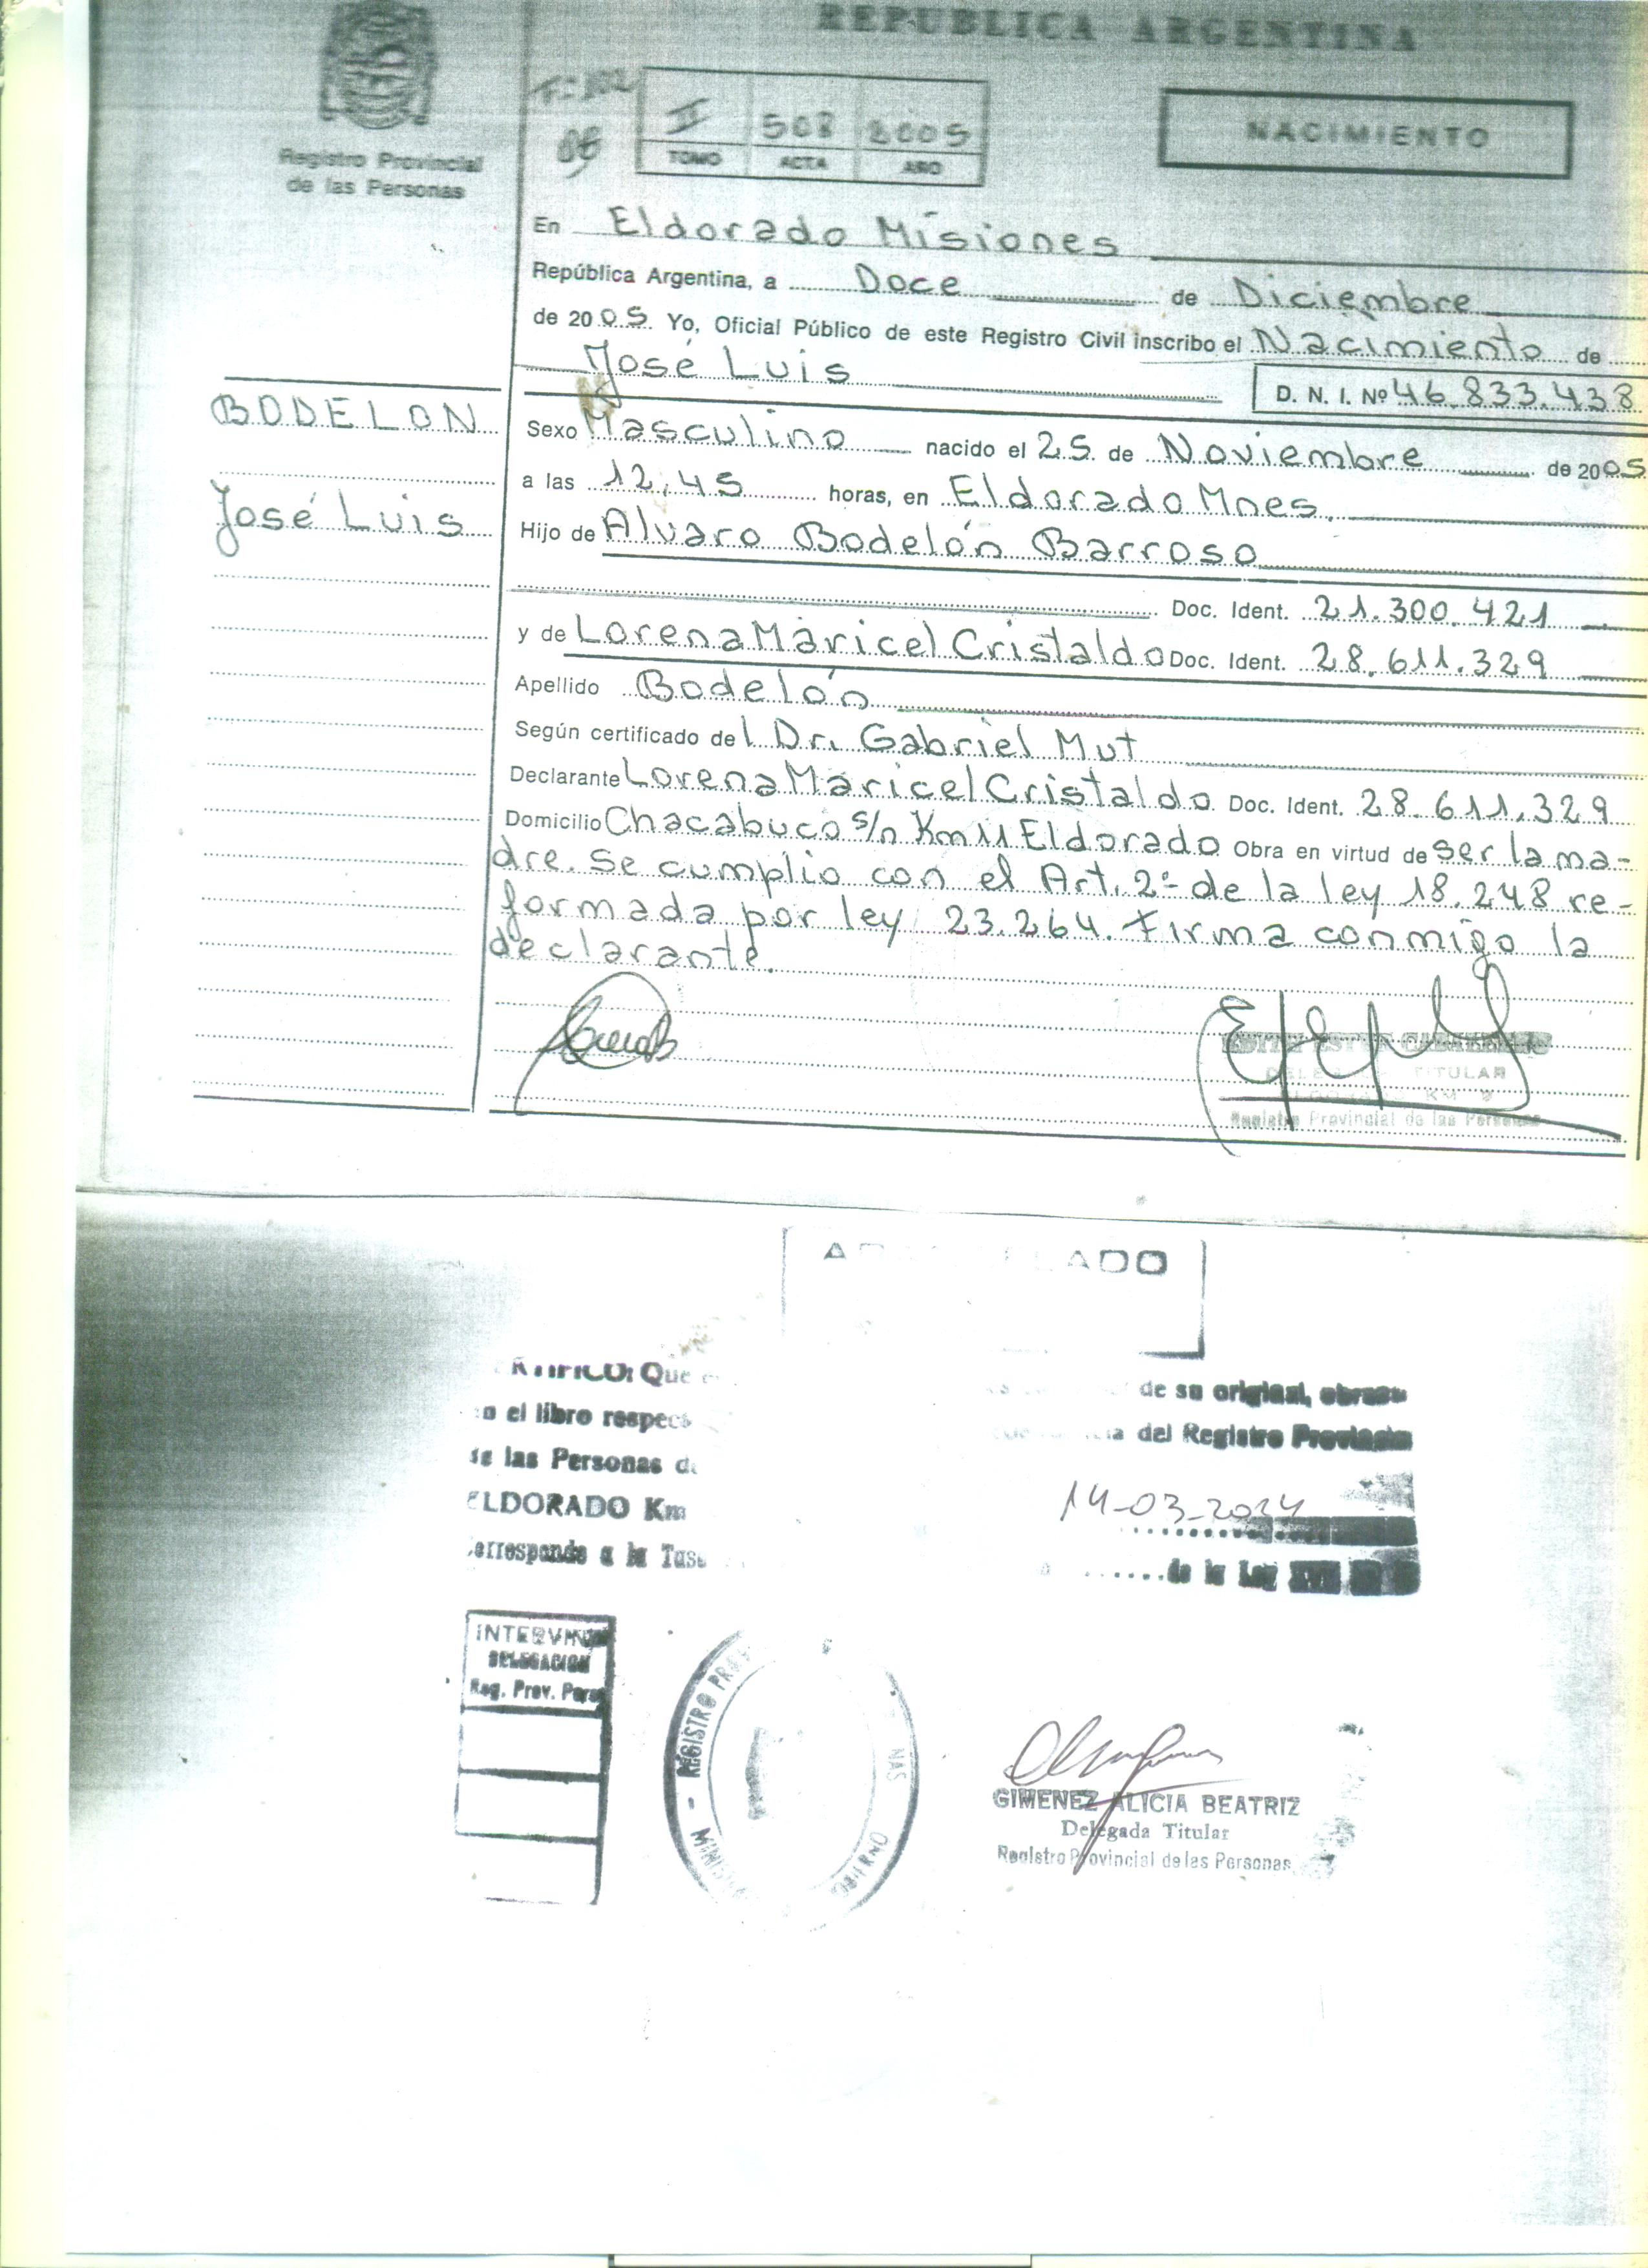 REPUBLICA ARGENTINA
Registro Provincial
de las Personas
05
II 508 2005
TOMO ACTA AÑO
NACIMIENTO
En Eldorado Misiones
República Argentina, a Doce de Diciembre
de 2005. Yo, Oficial Público de este Registro Civil inscribo el Nacimiento de
José Luis
D. N. I. Nº 46.833.438
BODELON
José Luis
Sexo Masculino nacido el 25 de Noviembre de 2005
a las 12,45 horas, en Eldorado Mnes.
Hijo de Alvaro Bodelón Barroso
Doc. Ident. 21.300.421
y de Lorena Maricel Cristaldo Doc. Ident. 28.611.329
Apellido Bodelón
Según certificado del Dr. Gabriel Mut
Declarante Lorena Maricel Cristaldo Doc. Ident. 28.611.329
Domicilio Chacabuco s/n Km 11 Eldorado Obra en virtud de ser la ma-
dre. Se cumplio con el Art. 2º de la ley 18.248 re-
formada por ley 23.264. Firma conmigo la
declarante.
TITULAR
KM 9
Registro Provincial de las Personas
Que
de su original, obrante
el libro respec
del Registro Provincia
las Personas
ELDORADO Km
14-03-2024
orresponde a la Tasa
de la Ley XVII
INTERVINO
DELEGACION
Reg. Prov. Pers
- REGISTRO PRO
NAS
MINIS
GIMENEZ ALICIA BEATRIZ
Delegada Titular
Registro Provincial de las Personas